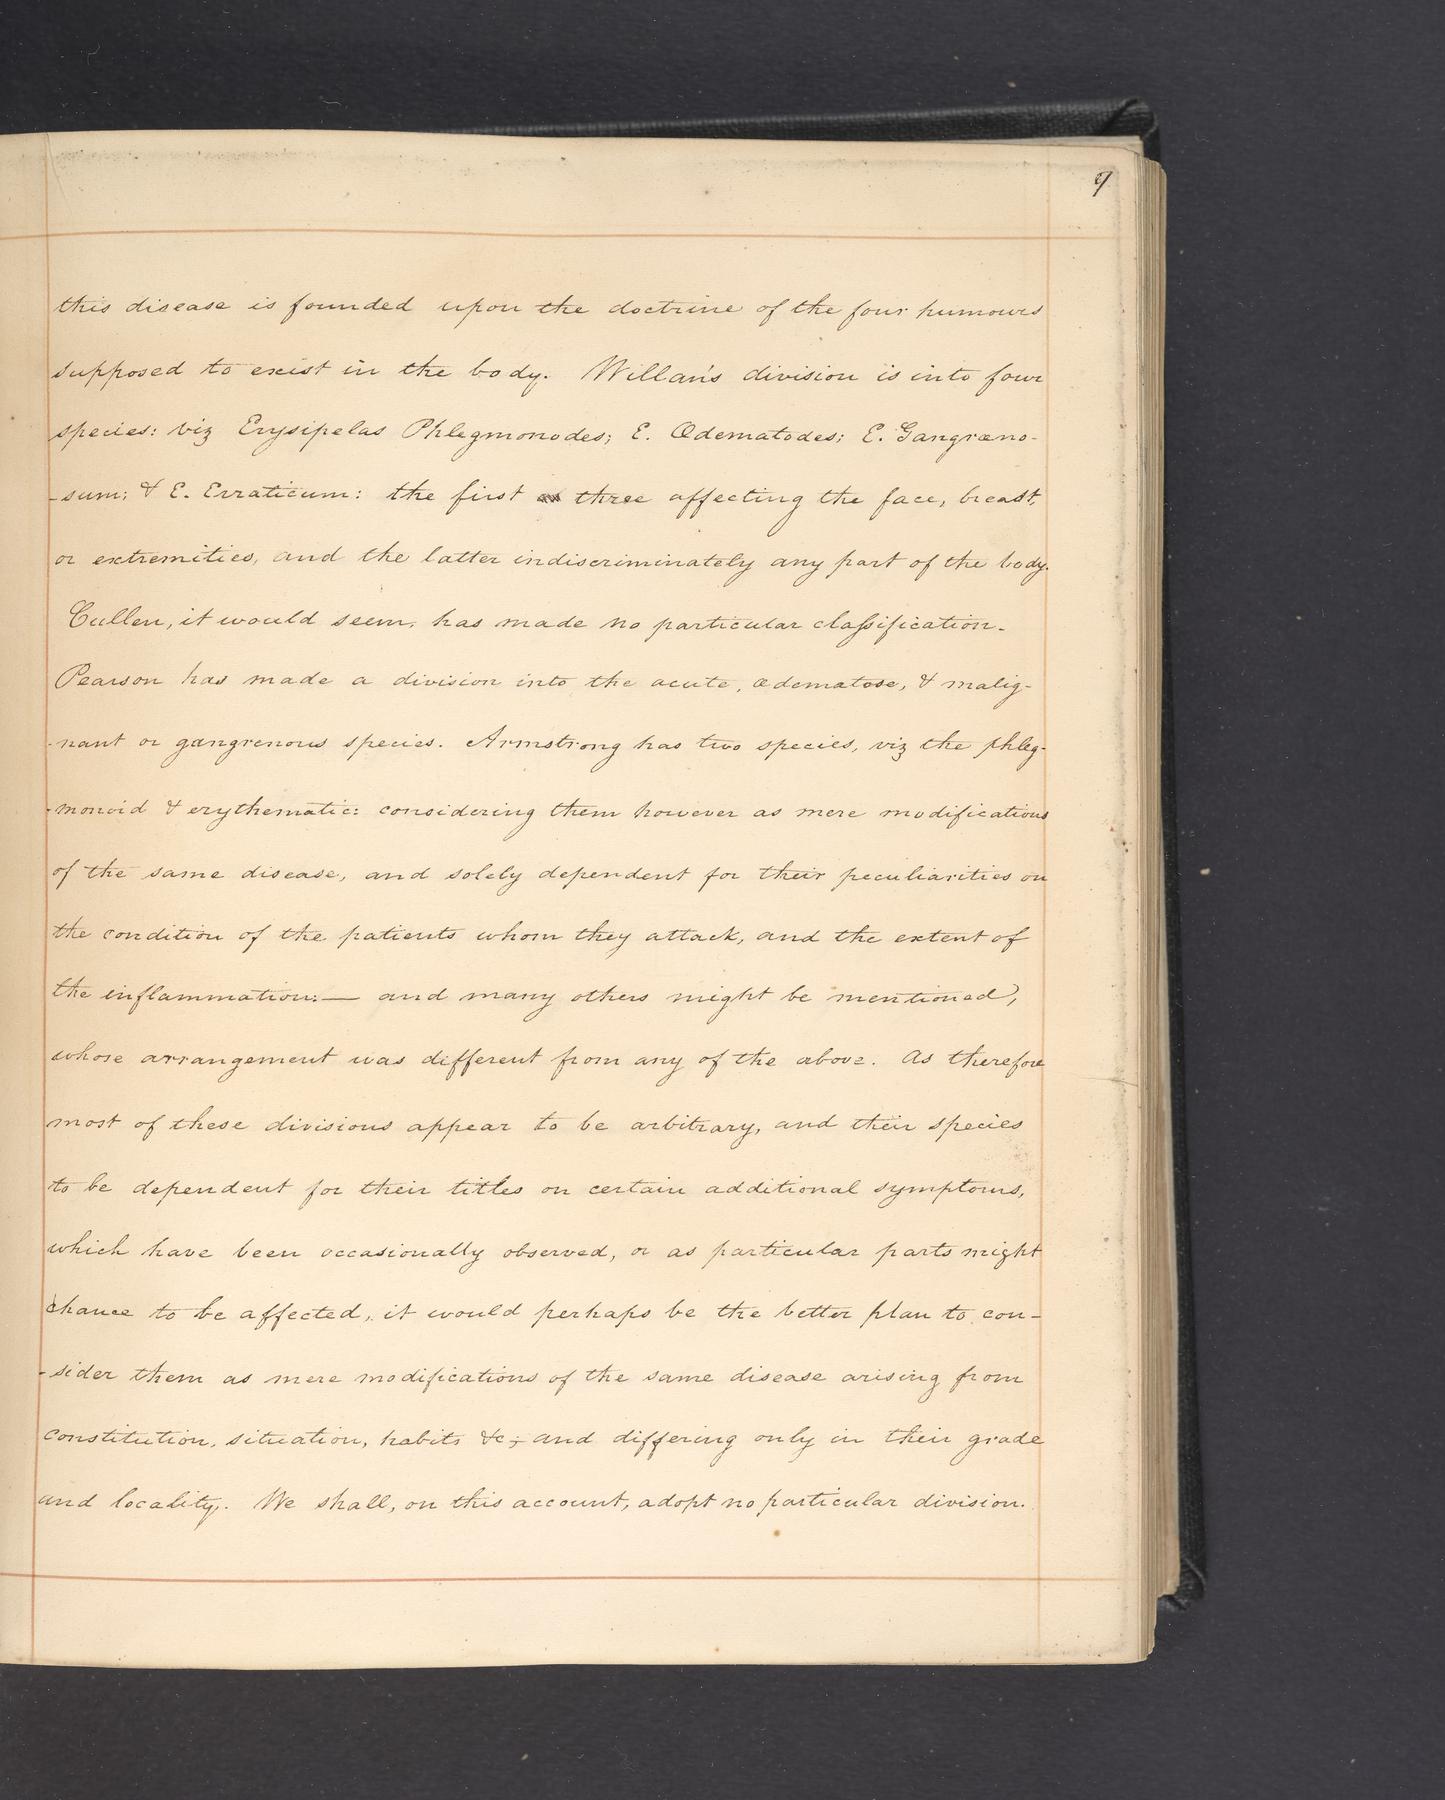 9
this disease is founded upon the doctrine of the four humours
supposed to exist in the body. Willan's division is into four
species: viz Erysipelas Phlegmonodes; E. Œdematodes; E. Gangræno-
-sum; & E. Erraticum: the first three affecting the face, breast,
or extremities, and the latter indiscriminately any part of the body.
Cullen, it would seem, has made no particular classification.
Pearson has made a division into the acute, œdematose, & malig-
-nant or gangrenous species. Armstrong has two species, viz the phleg-
-monoid & erythematic: considering them however as mere modifications
of the same disease, and solely dependent for their peculiarities on
the condition of the patients whom they attack, and the extent of
the inflammation:— and many others might be mentioned,
whose arrangement was different from any of the above. As therefore
most of these divisions appear to be arbitrary, and their species
to be dependent for their titles on certain additional symptoms,
which have been occasionally observed, or as particular parts might
chance to be affected, it would perhaps be the better plan to con-
-sider them as mere modifications of the same disease arising from
constitution, situation, habits &c; and differing only in their grade
and locality. We shall, on this account, adopt no particular division.